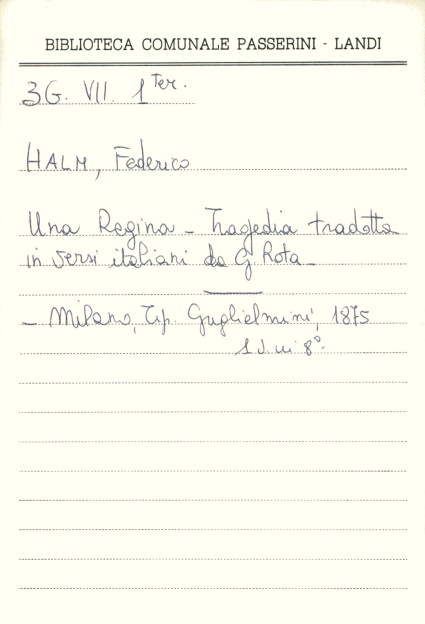 BIBLIOTECA COMUNALE PASSERINI - LANDI
3G. VII. 1 Ter.
HALM, Federico
Una Regina - Tragedia tradotta
in versi italiani da G. Rota -
- Milano, Tip. Guglielmini, 1875
1 v. in 8º.